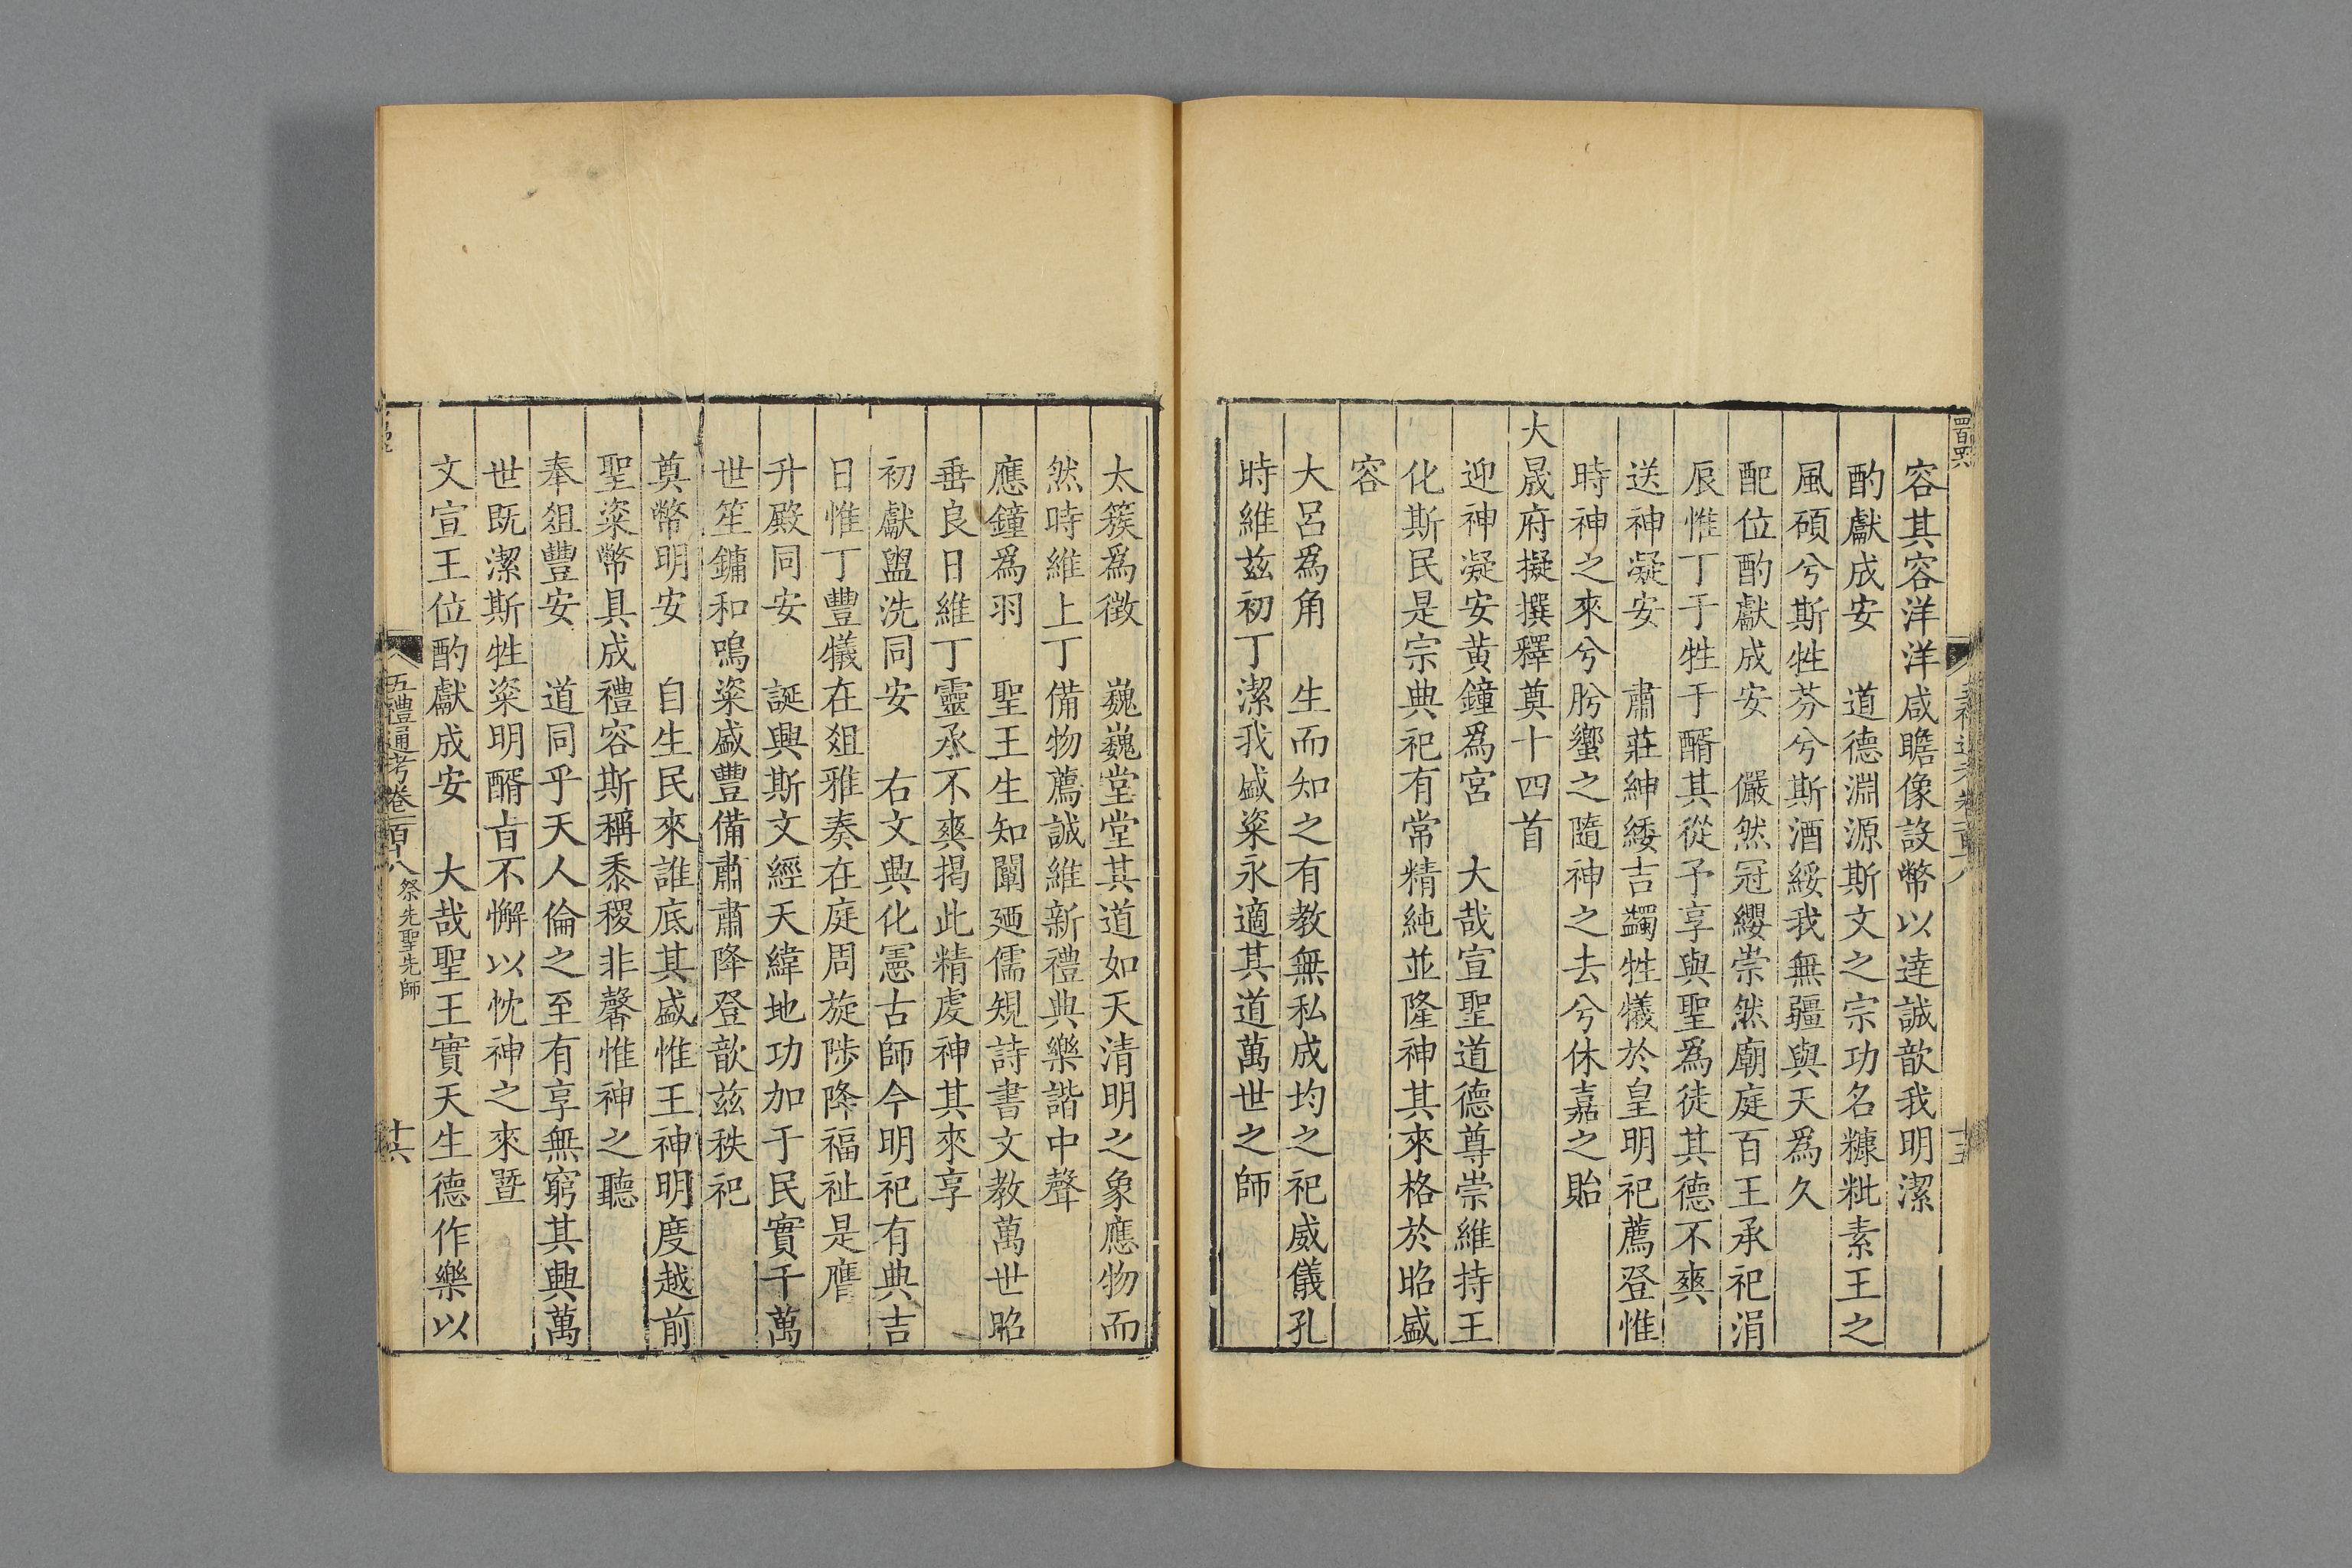 容其容洋洋咸瞻像設幣以達誠歆我明潔
酌獻成安　道德淵源斯文之宗功名糠粃素王之
風碩兮斯牲芬兮斯酒綏我無疆與天爲久
配位酌獻成安　儼然冠纓崇然廟庭百王承祀涓
辰惟丁于牲于醑其從予享與聖爲徒其德不爽
送神凝安　肅莊紳緌吉蠲牲犧於皇明祀薦登惟
時神之來兮肸蠁之隨神之去兮休嘉之貽
大晟府擬撰釋奠十四首
迎神凝安黃鐘爲宮　大哉宣聖道德尊崇維持王
化斯民是宗典祀有常精純並隆神其來格於昭盛
容
大呂爲角　生而知之有教無私成均之祀威儀孔
時維兹初丁潔我盛粢永適其道萬世之師
太簇爲徵　巍巍堂堂其道如天清明之象應物而
然時維上丁備物薦誠維新禮典樂諧中聲
應鐘爲羽　聖王生知闡廼儒規詩書文教萬世昭
垂良日維丁靈承不爽揭此精虔神其來享
初獻盥洗同安　右文興化憲古師今明祀有典吉
日惟丁豐犧在俎雅奏在庭周旋陟降福祉是膺
升殿同安　誕興斯文經天緯地功加于民實千萬
世笙鏞和鳴粢盛豐備肅肅降登歆兹秩祀
奠幣明安　自生民來誰底其盛惟王神明度越前
聖粢幣具成禮容斯稱黍稷非馨惟神之聽
奉俎豐安　道同乎天人倫之至有享無窮其興萬
世既潔斯牲粢明醑旨不懈以忱神之來暨
文宣王位酌獻成安　大哉聖王實天生德作樂以
五禮通考卷一百十八　祭先聖先師　十六